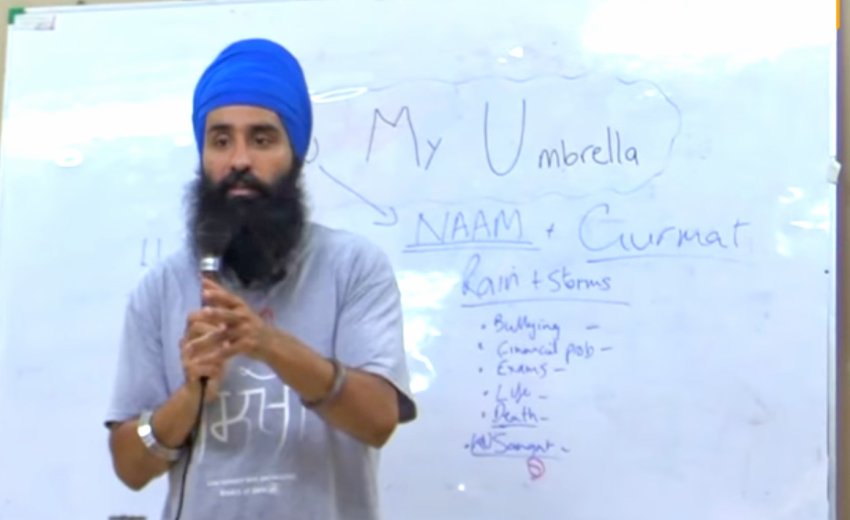 My Umbrella
NAAM + Gurmat
Rain + Storms
• Bullying –
• Financial prob –
• Exams –
• Life –
• Death –
Sangat –